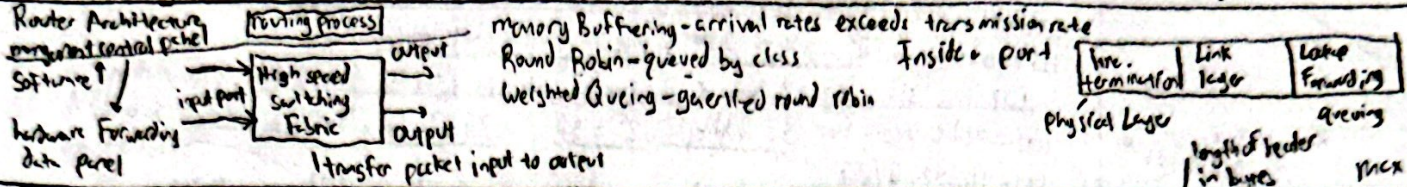 Router Architecture
routing process
control panel
Software
input port
High speed
Switching
Fabric
output
output
hardware Forwarding
data panel
transfer packet input to output
memory Buffering - arrival rates exceeds transmission rate
Round Robin - queued by class
weighted Queing - generlized round robin
Inside port
line.
termination
Link
layer
Forwarding
physical Layer
queuing
length of header
in bytes
max